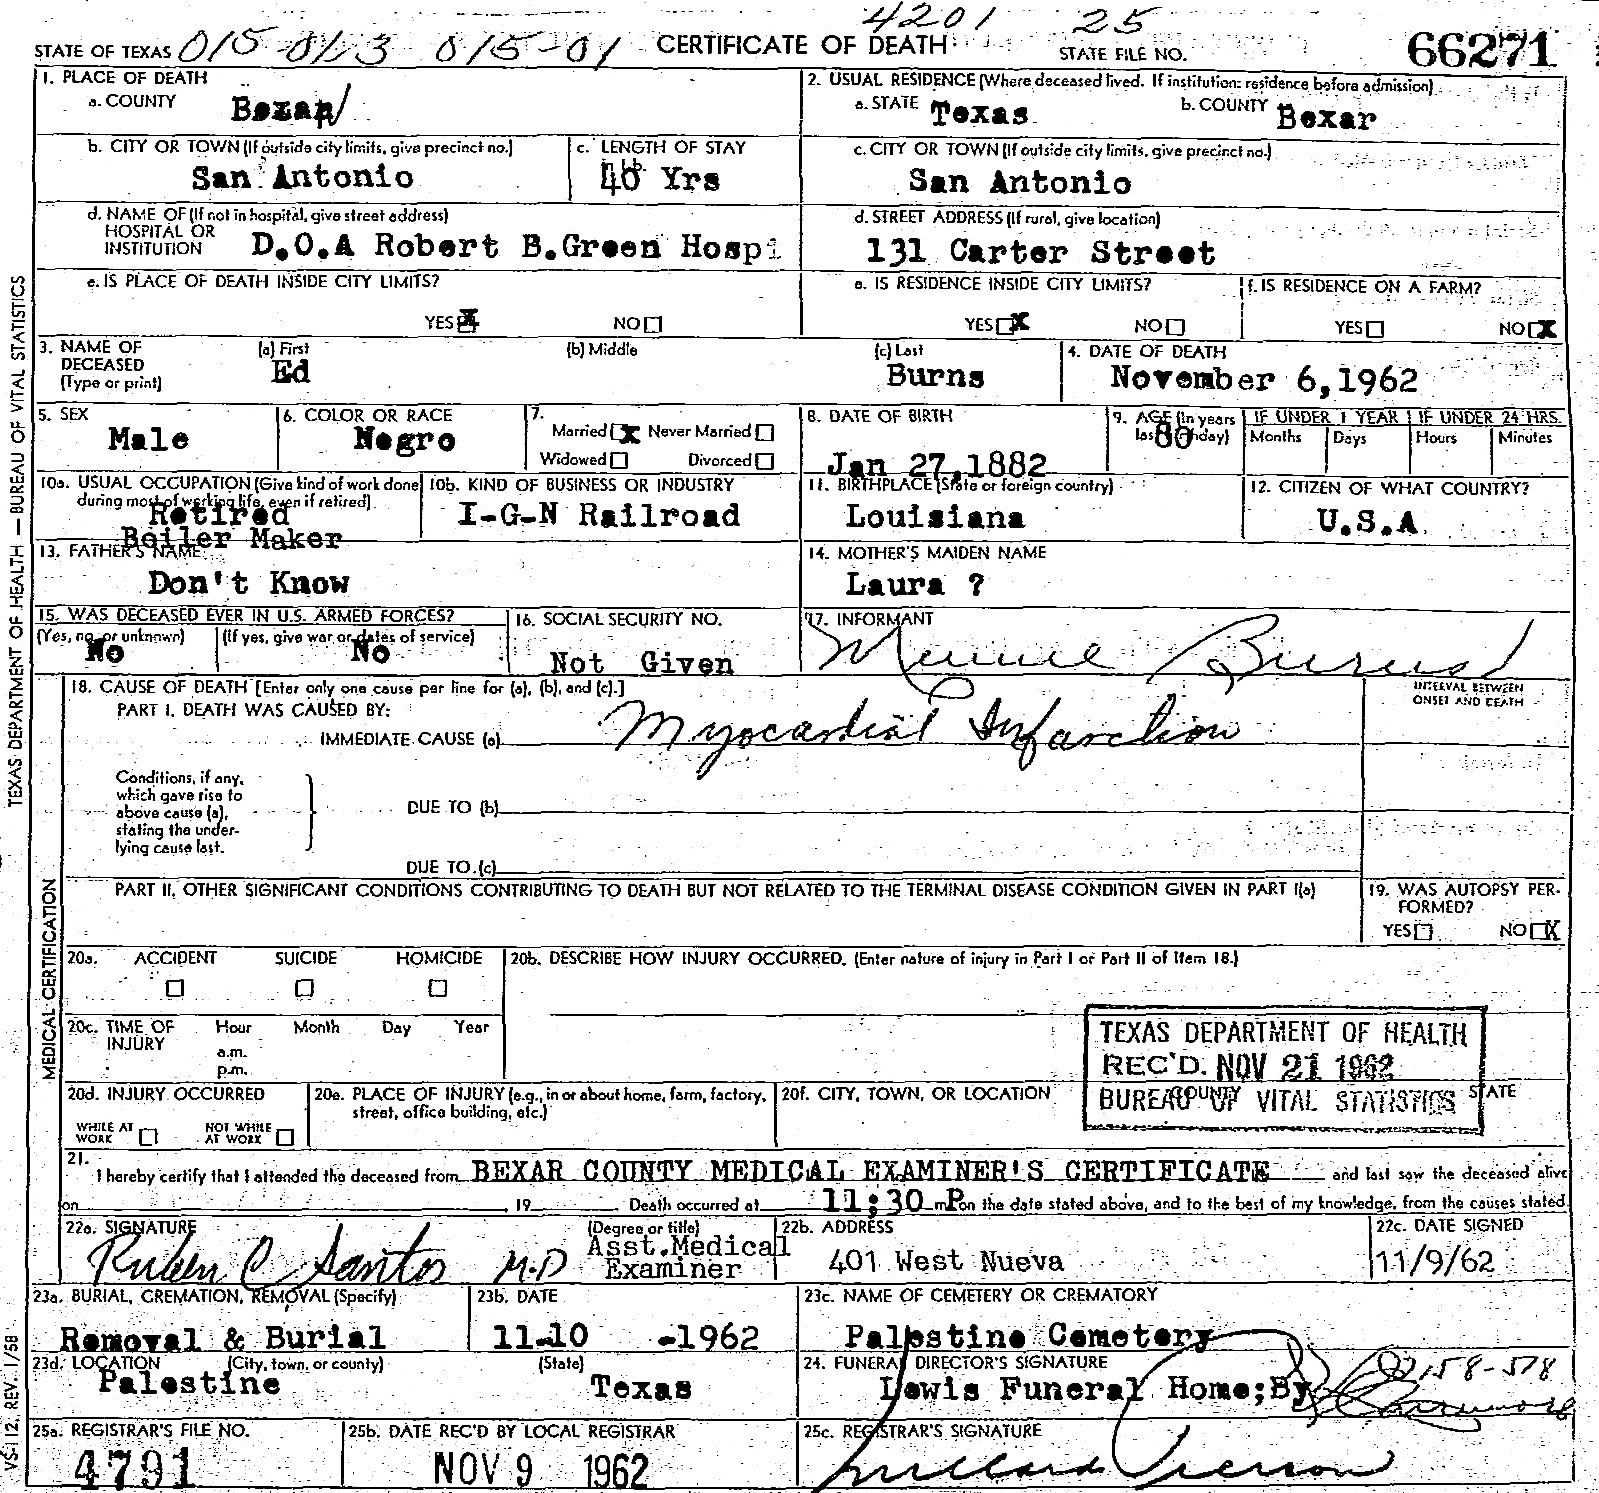 4201 25
STATE OF TEXAS 015-013 015-01 CERTIFICATE OF DEATH STATE FILE NO. 66271
1. PLACE OF DEATH
a. COUNTY Bexar
2. USUAL RESIDENCE (Where deceased lived. If institution: residence before admission)
a. STATE Texas b. COUNTY Bexar
b. CITY OR TOWN (If outside city limits, give precinct no.) San Antonio
c. LENGTH OF STAY 40 Yrs
c. CITY OR TOWN (If outside city limits, give precinct no.) San Antonio
d. NAME OF (If not in hospital, give street address)
HOSPITAL OR
INSTITUTION D.O.A Robert B.Green Hospi
d. STREET ADDRESS (If rural, give location)
131 Carter Street
e. IS PLACE OF DEATH INSIDE CITY LIMITS?
YES X NO
e. IS RESIDENCE INSIDE CITY LIMITS?
YES X NO
f. IS RESIDENCE ON A FARM?
YES NO X
3. NAME OF DECEASED (Type or print)
(a) First Ed (b) Middle (c) Last Burns
4. DATE OF DEATH
November 6,1962
5. SEX
Male
6. COLOR OR RACE
Negro
7.
Married X Never Married
Widowed Divorced
8. DATE OF BIRTH
Jan 27,1882
9. AGE (In years last birthday) 80
IF UNDER 1 YEAR
Months Days
IF UNDER 24 HRS.
Hours Minutes
10a. USUAL OCCUPATION (Give kind of work done
during most of working life, even if retired)
Retired
Boiler Maker
10b. KIND OF BUSINESS OR INDUSTRY
I-G-N Railroad
11. BIRTHPLACE (State or foreign country)
Louisiana
12. CITIZEN OF WHAT COUNTRY?
U.S.A
13. FATHER'S NAME
Don't Know
14. MOTHER'S MAIDEN NAME
Laura ?
15. WAS DECEASED EVER IN U.S. ARMED FORCES?
(Yes, no, or unknown) No
(If yes, give war or dates of service) No
16. SOCIAL SECURITY NO.
Not Given
17. INFORMANT
Minnie Burns
18. CAUSE OF DEATH [Enter only one cause per line for (a), (b), and (c).]
INTERVAL BETWEEN
ONSET AND DEATH
PART I. DEATH WAS CAUSED BY:
IMMEDIATE CAUSE (a) Myocardial Infarction
Conditions, if any,
which gave rise to
above cause (a),
stating the under-
lying cause last.
DUE TO (b)
DUE TO (c)
PART II. OTHER SIGNIFICANT CONDITIONS CONTRIBUTING TO DEATH BUT NOT RELATED TO THE TERMINAL DISEASE CONDITION GIVEN IN PART I(a)
19. WAS AUTOPSY PER-
FORMED?
YES NO X
20a. ACCIDENT SUICIDE HOMICIDE
20b. DESCRIBE HOW INJURY OCCURRED. (Enter nature of injury in Part I or Part II of Item 18.)
20c. TIME OF
INJURY
Hour Month Day Year
a.m.
p.m.
TEXAS DEPARTMENT OF HEALTH
REC'D. NOV 21 1962
BUREAU OF VITAL STATISTICS
20d. INJURY OCCURRED
WHILE AT WORK NOT WHILE AT WORK
20e. PLACE OF INJURY (e.g., in or about home, farm, factory,
street, office building, etc.)
20f. CITY, TOWN, OR LOCATION COUNTY STATE
21.
I hereby certify that I attended the deceased from BEXAR COUNTY MEDICAL EXAMINER'S CERTIFICATE and last saw the deceased alive
on , 19 Death occurred at 11:30 m P on the date stated above, and to the best of my knowledge, from the causes stated.
22a. SIGNATURE (Degree or title)
Ruben C Santos M.D Asst.Medical
Examiner
22b. ADDRESS
401 West Nueva
22c. DATE SIGNED
11/9/62
23a. BURIAL, CREMATION, REMOVAL (Specify)
Removal & Burial
23b. DATE
11-10 -1962
23c. NAME OF CEMETERY OR CREMATORY
Palestine Cemetery
23d. LOCATION (City, town, or county) (State)
Palestine Texas
24. FUNERAL DIRECTOR'S SIGNATURE
Lewis Funeral Home;By
25a. REGISTRAR'S FILE NO.
4791
25b. DATE REC'D BY LOCAL REGISTRAR
NOV 9 1962
25c. REGISTRAR'S SIGNATURE
TEXAS DEPARTMENT OF HEALTH — BUREAU OF VITAL STATISTICS
MEDICAL CERTIFICATION
VS-112, REV. 1/58